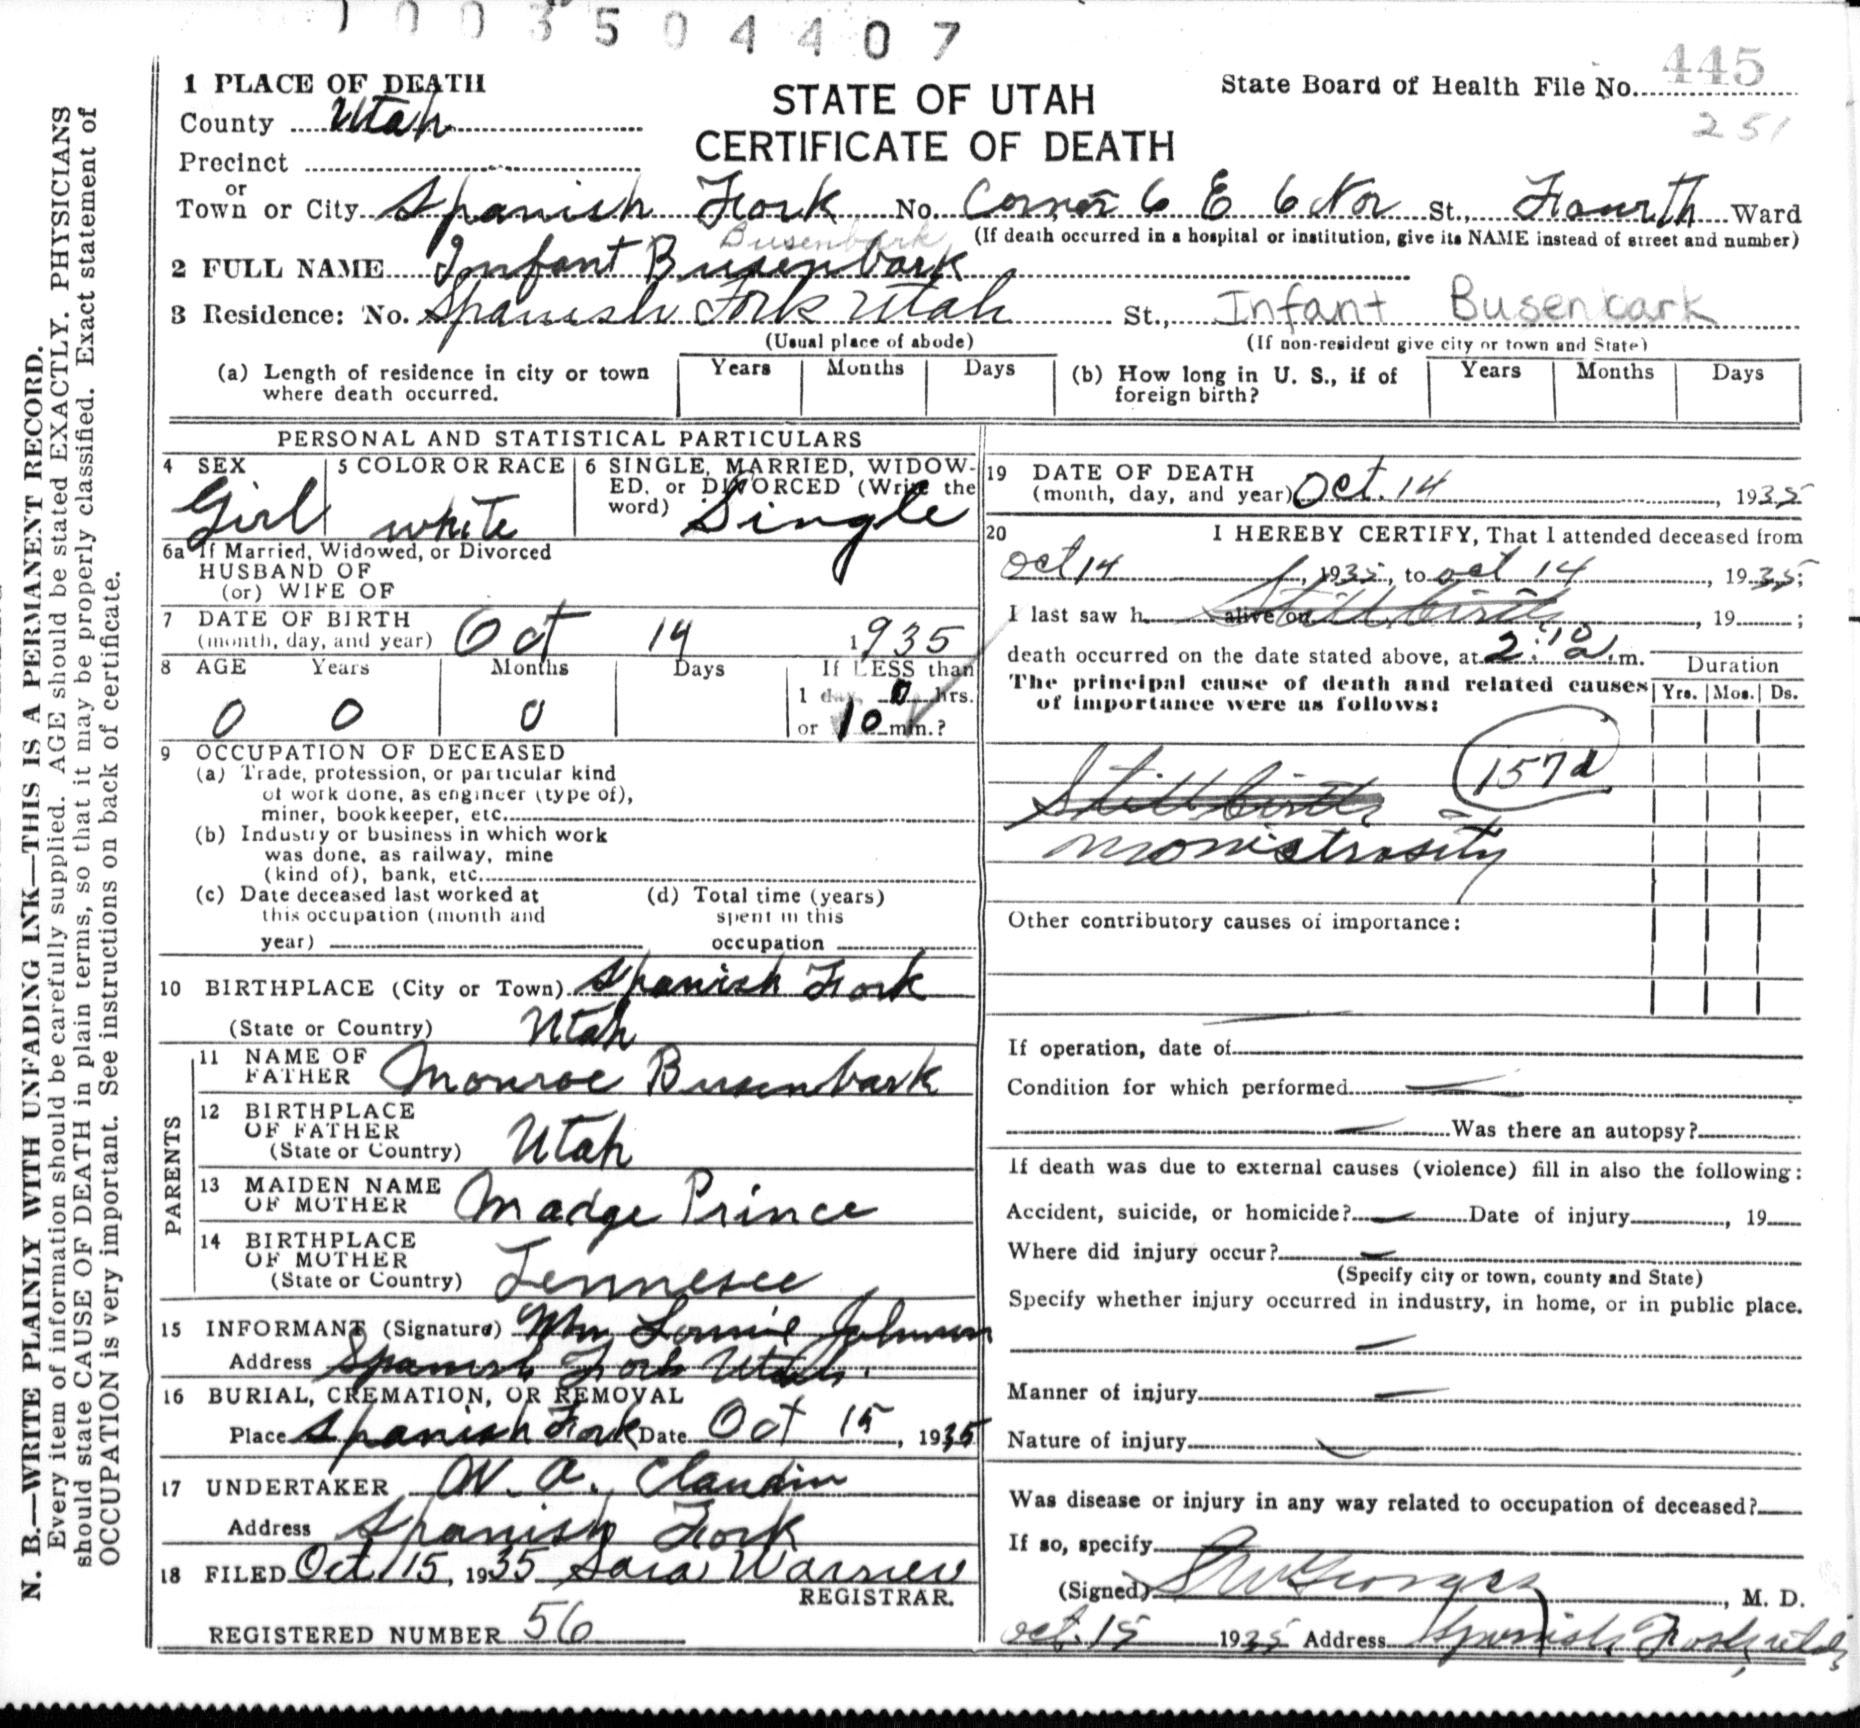 1003504407
1 PLACE OF DEATH
STATE OF UTAH
CERTIFICATE OF DEATH
State Board of Health File No. 445
251
County Utah
Precinct
or
Town or City Spanish Fork No. Corner 6 E 6 Nor St., Fourth Ward
(If death occurred in a hospital or institution, give its NAME instead of street and number)
Busenbark
2 FULL NAME Infant Busenbark
3 Residence: No. Spanish Fork Utah St., Infant Busenbark
(Usual place of abode) (If non-resident give city or town and State)
(a) Length of residence in city or town where death occurred. Years Months Days (b) How long in U. S., if of foreign birth? Years Months Days
PERSONAL AND STATISTICAL PARTICULARS
4 SEX Girl
5 COLOR OR RACE white
6 SINGLE, MARRIED, WIDOW-
ED, or DIVORCED (Write the
word) Single
6a If Married, Widowed, or Divorced
HUSBAND OF
(or) WIFE OF
7 DATE OF BIRTH
(month, day, and year) Oct 14 1935
8 AGE Years Months Days If LESS than
0 0 0 1 day 0 hrs.
or 10 min.?
9 OCCUPATION OF DECEASED
(a) Trade, profession, or particular kind
of work done, as engineer (type of),
miner, bookkeeper, etc.
(b) Industry or business in which work
was done, as railway, mine
(kind of), bank, etc.
(c) Date deceased last worked at
this occupation (month and
year)
(d) Total time (years)
spent in this
occupation
10 BIRTHPLACE (City or Town) Spanish Fork
(State or Country) Utah
PARENTS
11 NAME OF
FATHER Monroe Busenbark
12 BIRTHPLACE
OF FATHER
(State or Country) Utah
13 MAIDEN NAME
OF MOTHER Madge Prince
14 BIRTHPLACE
OF MOTHER
(State or Country) Tennesee
15 INFORMANT (Signature) Johnson
Address Spanish Fork Utah.
16 BURIAL, CREMATION, OR REMOVAL
Place Spanish Fork Date Oct 15, 1935
17 UNDERTAKER W. A. Claudin
Address Spanish Fork
18 FILED Oct 15, 1935 Sara Warner
REGISTRAR.
REGISTERED NUMBER 56
19 DATE OF DEATH
(month, day, and year) Oct. 14, 1935
20 I HEREBY CERTIFY, That I attended deceased from
Oct 14, 1935, to Oct 14, 1935;
I last saw h alive on Still birth, 19 ;
death occurred on the date stated above, at 2:10 a.m.
Duration
The principal cause of death and related causes
of importance were as follows:
Yrs. Mos. Ds.
157d
Still birth
Monistrosity
Other contributory causes of importance:
If operation, date of
Condition for which performed
Was there an autopsy?
If death was due to external causes (violence) fill in also the following:
Accident, suicide, or homicide? Date of injury , 19
Where did injury occur?
(Specify city or town, county and State)
Specify whether injury occurred in industry, in home, or in public place.
Manner of injury
Nature of injury
Was disease or injury in any way related to occupation of deceased?
If so, specify
(Signed) , M. D.
Oct. 15 1935 Address Spanish Fork, Utah
N. B.—WRITE PLAINLY WITH UNFADING INK—THIS IS A PERMANENT RECORD.
Every item of information should be carefully supplied. AGE should be stated EXACTLY. PHYSICIANS
should state CAUSE OF DEATH in plain terms, so that it may be properly classified. Exact statement of
OCCUPATION is very important. See instructions on back of certificate.